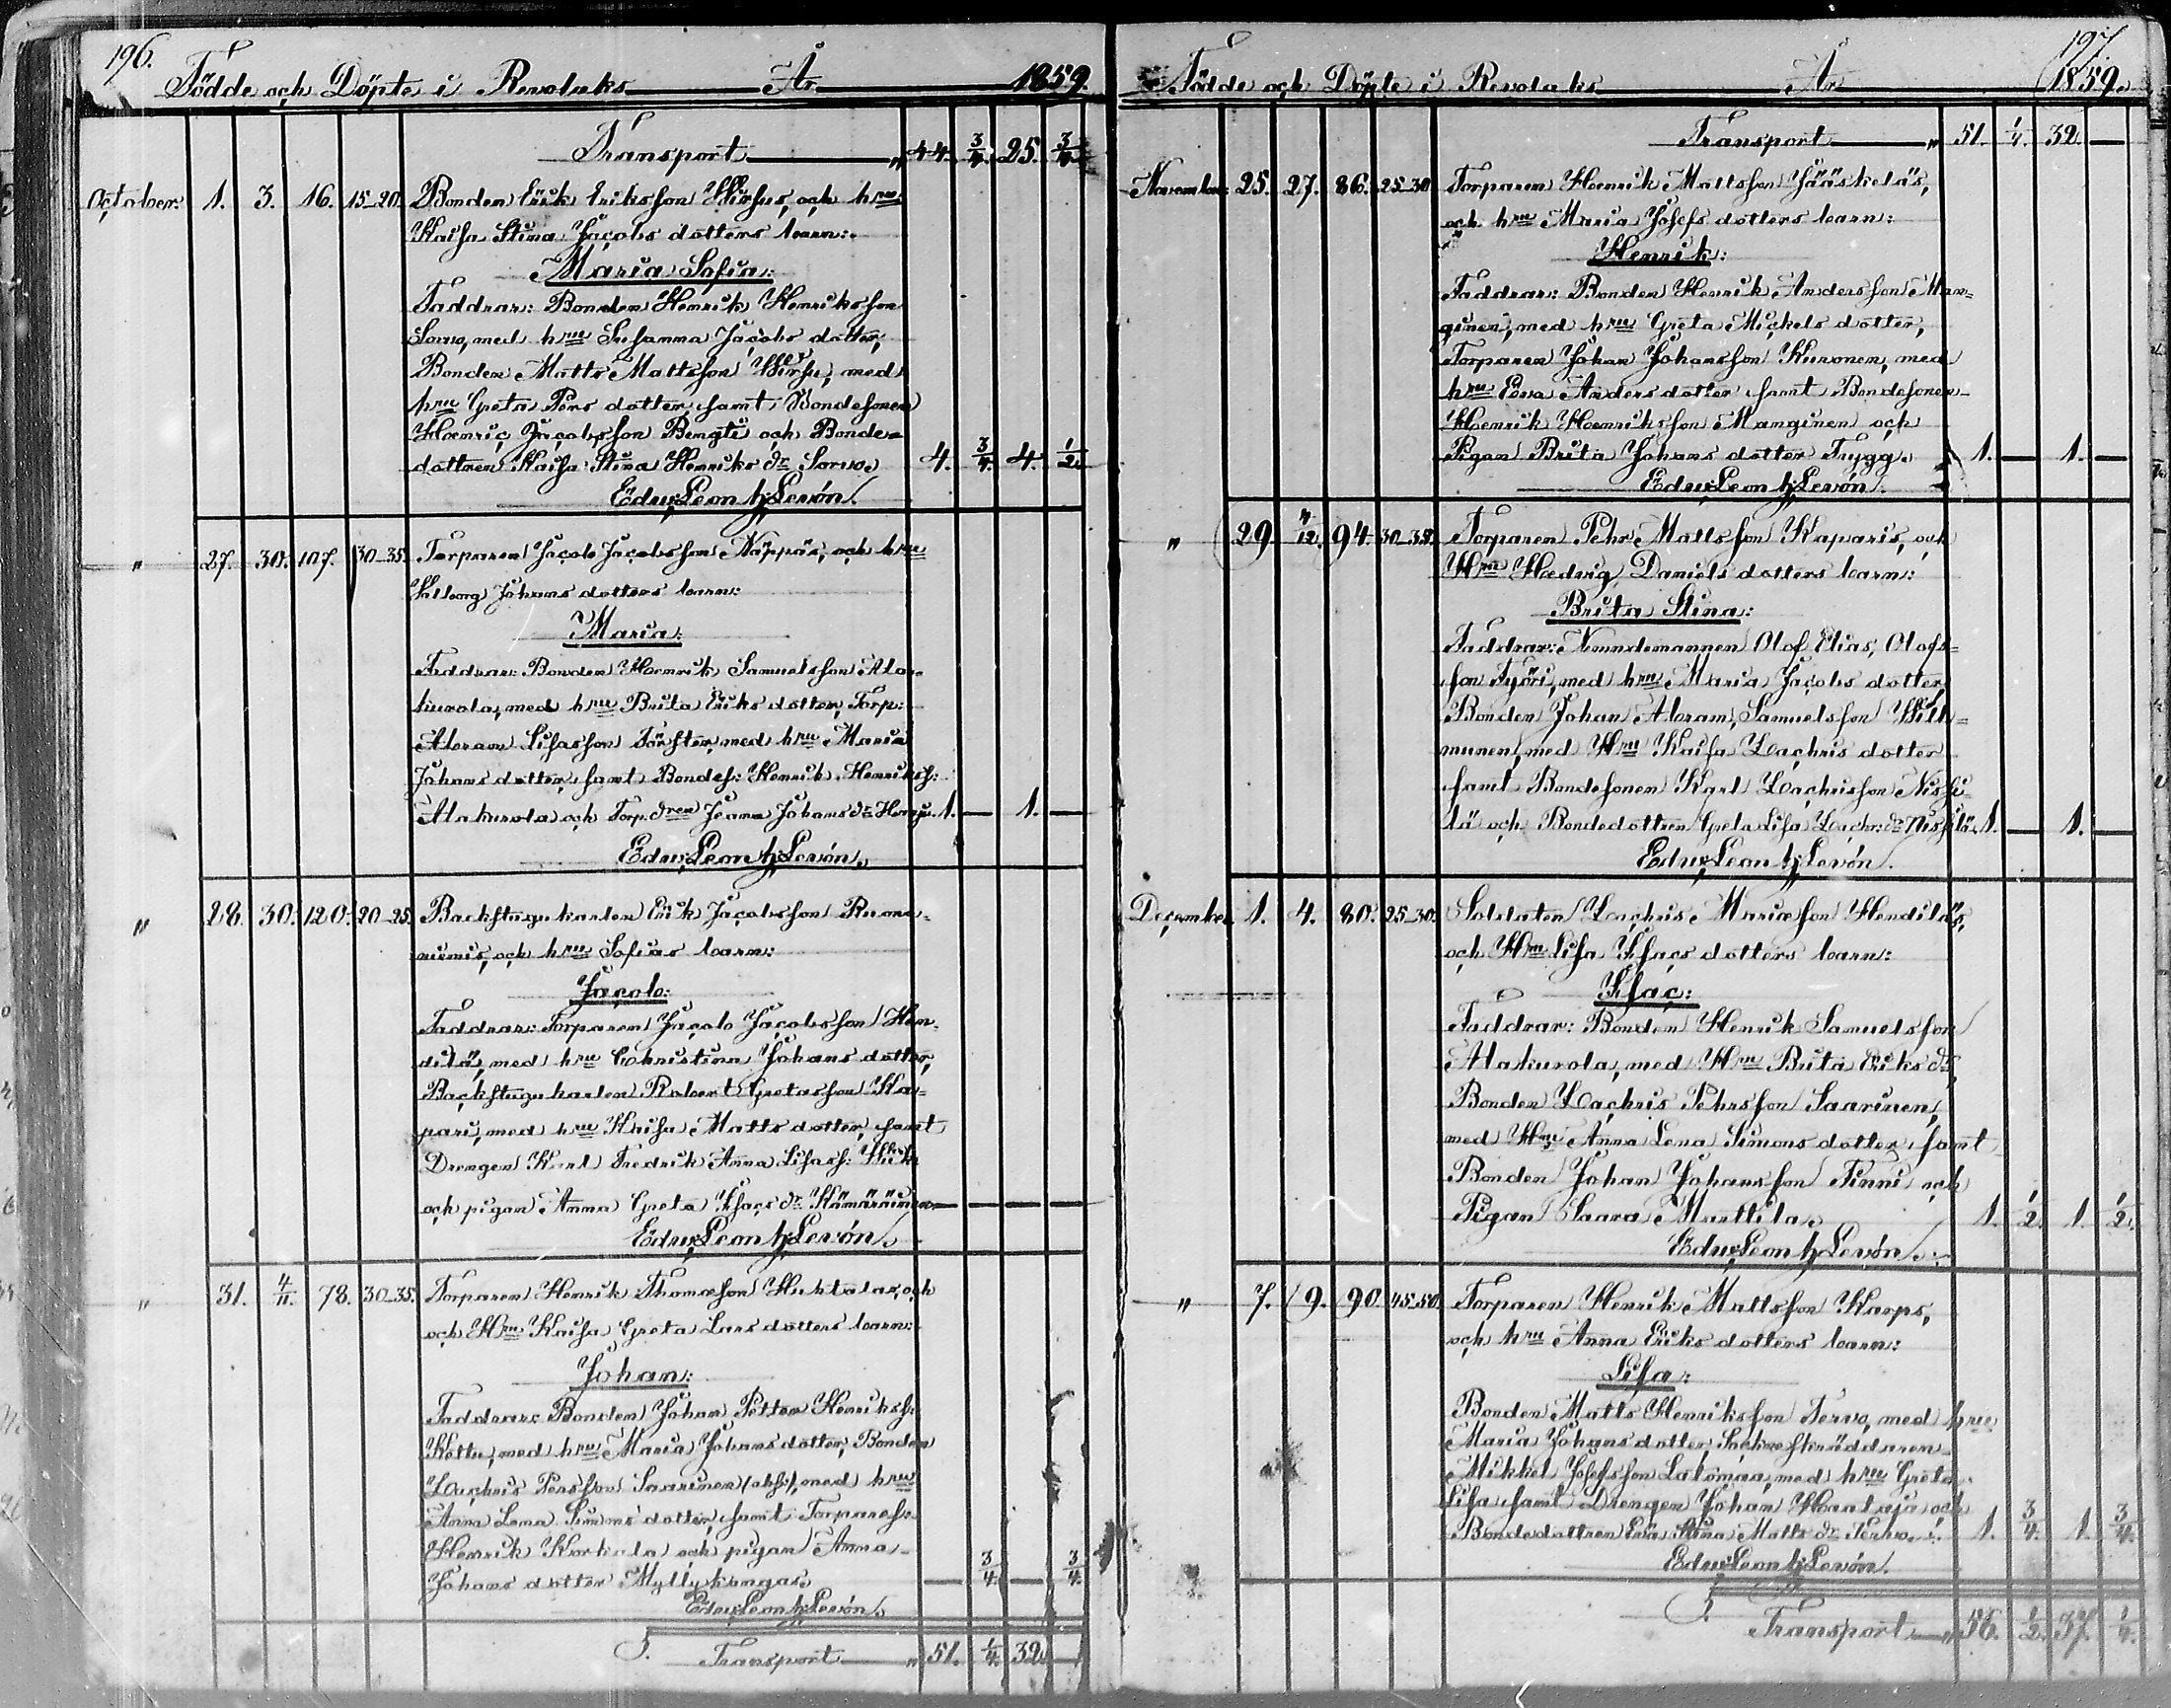 196.
Födde och Döpte i Revolaks År 1859.
Transport " 44. 3/4. 25. 3/4.
October. 1. 3. 16. 15-20. Bonden Erik Eriksson Hirsus, och hru
Kaisa Stina Jacobs dotters barn:
Maria Sofia:
Faddrar: Bonden Henrik Henriksson
Sorvo, med hru Susanna Jacobs dotter,
Bonden Matts Mattsson Hirsu, med
hru Greta Pers dotter, samt Bondesonen
Henric Jacobsson Bengti och Bonde-
dottren Kaisa Stina Henriks dr Sorvo. 4. 3/4. 4. 1/2.
Edv: Leon h: Levón.
" 27. 30. 107. 30-35. Torparen Jacob Jacobsson Näppäs, och hru
Valborg Johans dotters barn:
Maria:
Faddrar: Bonden Henrik Samuelsson Ala-
kurola, med hru Brita Eriks dotter, Torp:
Abram Lisasson Förster, med hru Maria
Johans dotter, samt Bondes: Henrik Henrikss:
Alakurola och Torp. dren Joanna Johans dr 1. — 1. —
Edv: Leon h: Levón.
" 28. 30. 120. 20-25. Backstugukarlen Erik Jacobsson Ruona-
niemis, och hru Sofias barn:
Jacob:
Faddrar: Torparen Jacob Jacobsson Hen-
dilä, med hru Christina Johans dotter,
Backstugukarlen Robert Gretasson Ka-
pari, med hru Kaisa Matts dotter, samt
Drengen Karl Fredrik Anna Lisass:
och pigan Anna Greta Isacs dr Kämäräinen — — — —
Edv: Leon h: Levón.
" 31. 4/11. 78. 30-35. Torparen Henrik Thomasson Huhtalas, och
och Hru Kaisa Greta Lars dotters barn:
Johan:
Faddrar: Bonden Johan Petter Henrikss:
Kettu, med hru Maria Johans dotter, Bonden
Zachris Persson Saarinen med hru
Anna Lena Simons dotter, samt Torpares:
Henrik Korkala och pigan Anna
Johans dotter Myllykangas. — 3/4. — 3/4.
Edv: Leon h: Levón.
Transport " 51. 1/4. 32. —
197.
Födde och Döpte i Revolaks År 1859.
Transport " 51. 1/4. 32. —
November. 25. 27. 86. 25-30. Torparen Henrik Mattsson Jääskeläs,
och hru Maria Josefs dotters barn:
Henrik:
Faddrar: Bonden Henrik Andersson Man-
ginen, med hru Greta Mickels dotter,
Torparen Johan Johansson Kuronen, med
hru Eeva Anders dotter samt Bondesonen
Henrik Henriksson Manginen och
Pigan Brita Johans dotter Trygg. 1. — 1. —
Edv: Leon h: Levón.
" 29. 4/12. 94. 30-35. Torparen Pehr Mattsson Kaparis, och
Hru Hedvig Daniels dotters barn:
Brita Stina:
Faddrar: Nämndemannen Olof Elias Olofs-
son Työri, med hru Maria Jacobs dotter,
Bonden Johan Abram Samuelsson Will-
munen, med Hru Kaisa Zachris dotter
samt Bondesonen Karl Zachrisson Nissi-
lä och Bondedottren Greta Lisa Zachr: dr Nissilä. 1. — 1. —
Edv: Leon h: Levón.
December. 1. 4. 80. 25-30. Soldaten Zachris Mariæson Hendiläs,
och Hru Lisa Isacs dotters barn:
Isac:
Faddrar: Bonden Henrik Samuelsson
Alakurola, med Hru Brita Eriks dr,
Bonden Zachris Pehrsson Saarinen,
med Hru Anna Lena Simons dotter, samt
Bonden Johan Johansson Finni och
Pigan Saara Marttila. 1. 1/2. 1. 1/2.
Edv: Leon h: Levón.
" 7. 9. 90. 45-50. Torparen Henrik Mattsson Karps,
och hru Anna Eriks dotters barn:
Lisa:
Bonden Matts Henriksson Tervo, med hru
Maria Johans dotter, Sockneskräddaren
Mikkel Josefsson Latomaa, med hru Greta
Lisa samt Drengen Johan Haataja och
Bondedottren Eva Stina Matts dr Tervo. 1. 3/4. 1. 3/4.
Edv: Leon h: Levón.
Transport " 56. 1/2. 37. 1/4.